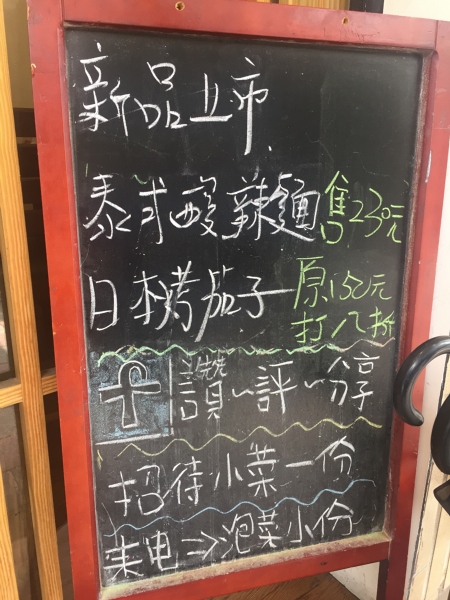 新品上市
泰式酸辣麵售230元
日本烤茄子 原150元
打八折
讚~評~分享
招待小菜一份
来电⇒泡菜小份